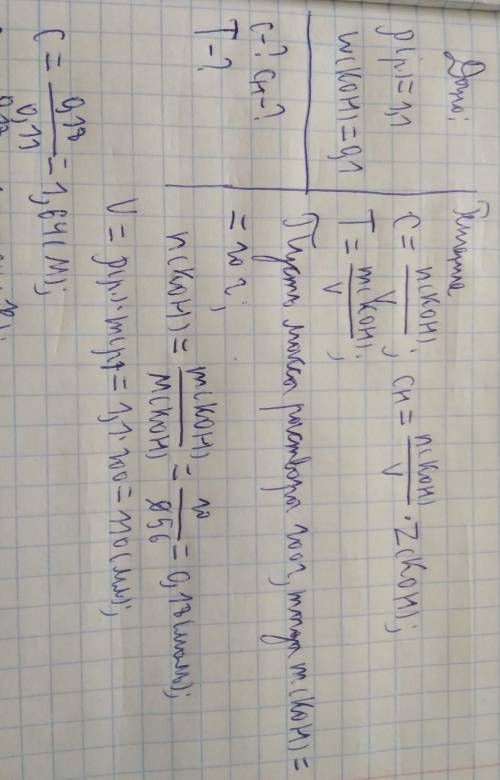 Дано:
ρ(р) = 1,1
w(KOH) = 0,1
C-? Cн-?
T-?
Решение
C = n(KOH) / V; Cн = n(KOH) / V · Z(KOH);
T = m(KOH) / V;
Пусть масса раствора 100 г, тогда m(KOH) =
= 10 г;
n(KOH) = m(KOH) / M(KOH) = 10 / 56 = 0,18 (моль);
V = ρ(р) · m(р) = 1,1 · 100 = 110 (мл);
C = 0,18 / 0,11 = 1,64 (M);